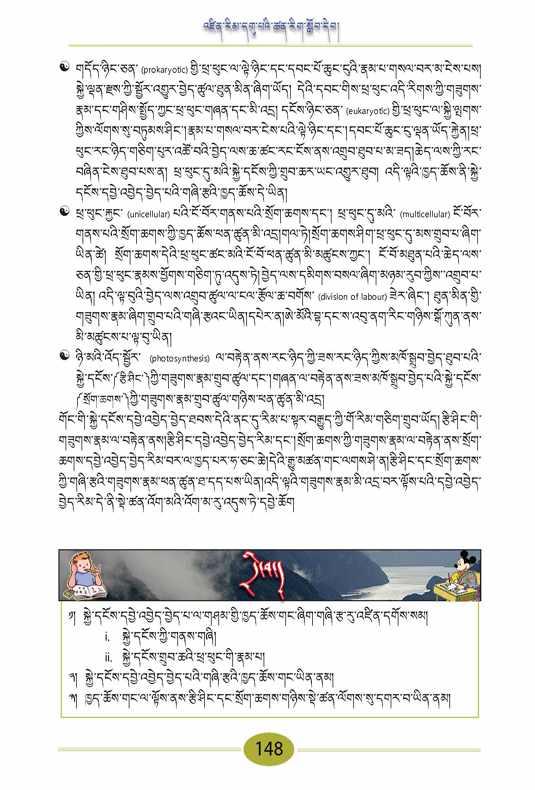 འཛིན་རིམ་དགུ་པའི་ཚན་རིག་སློབ་དེབ།
གདོད་ཉིང་ཅན་ (prokaryotic) གྱི་ཕྲ་ཕུང་ལ་ལྟེ་ཉིང་དང་དབང་པོ་ཆུང་ངུའི་རྣམ་པ་གསལ་བར་མ་ངེས་པས།
སྐྱེ་ལྡན་རྫས་ཀྱི་སྦྱོར་འགྱུར་བྱེད་ཚུལ་ཐུན་མིན་ཞིག་ཡོད། དེའི་དབང་གིས་ཕྲ་ཕུང་འདི་རིགས་ཀྱི་གཟུགས་
རྣམ་དང་གཤིས་སྤྱོད་ཀྱང་ཕྲ་ཕུང་གཞན་དང་མི་འདྲ། དངོས་ཉིང་ཅན་ (eukaryotic) གྱི་ཕྲ་ཕུང་ལ་སྐྱི་ལྤགས་
ཀྱིས་ལོགས་སུ་བཏུམས་ཤིང་། རྣམ་པ་གསལ་བར་ངེས་པའི་ལྟེ་ཉིང་དང་། དབང་པོ་ཆུང་ངུ་ལྡན་ཡོད་རྐྱེན།ཕྲ་
ཕུང་རང་ཉིད་གཅིག་པུར་འཚོ་བའི་བྱེད་ལས་ཆ་ཚང་རང་ངོས་ནས་འགྲུབ་ཐུབ་པ་མ་ཟད།ཆེད་ལས་ཀྱི་རང་
བཞིན་ངེས་ཐུབ་པས་ན། ཕྲ་ཕུང་དུ་མའི་སྐྱེ་དངོས་ཀྱི་གྲུབ་ཆར་ཡང་འགྱུར་ཐུབ། འདི་ལྟའི་ཁྱད་ཆོས་ནི་སྐྱེ་
དངོས་དབྱེ་འབྱེད་བྱེད་པའི་གཞི་རྩའི་ཁྱད་ཆོས་དེ་ཡིན།
ཕྲ་ཕུང་རྐྱང་ (unicellular) པའི་ངོ་བོར་གནས་པའི་སྲོག་ཆགས་དང་། ཕྲ་ཕུང་དུ་མའི་ (multicellular) ངོ་བོར་
གནས་པའི་སྲོག་ཆགས་ཀྱི་ཁྱད་ཆོས་ཕན་ཚུན་མི་འདྲ།གལ་ཏེ།སྲོག་ཆགས་ཤིག་ཕྲ་ཕུང་དུ་མས་གྲུབ་པ་ཞིག་
ཡིན་ཚེ། སྲོག་ཆགས་དེའི་ཕྲ་ཕུང་ཚང་མའི་ངོ་བོ་ཕན་ཚུན་མི་མཚུངས་ཀྱང་། ངོ་བོ་མཐུན་པའི་ཆེད་ལས་
ཅན་གྱི་ཕྲ་ཕུང་རྣམས་ཕྱོགས་གཅིག་ཏུ་འདུས་ཏེ།བྱེད་ལས་དམིགས་བསལ་ཞིག་མཉམ་རུབ་ཀྱིས་འགྲུབ་པ་
ཡིན། འདི་ལྟ་བུའི་བྱེད་ལས་འགྲུབ་ཚུལ་ལ་ངལ་རྩོལ་ཆ་བགོས་ (division of labour) ཟེར་ཞིང་། ཐུན་མིན་གྱི་
གཟུགས་རྣམ་ཞིག་གྲུབ་པའི་གཞི་རྩའང་ཡིན།དཔེར་ན།ཨེ་མོའོི་བྷ་དང་ས་འབུ་ནག་རིང་གཉིས་སྤྱོ་ཀུན་ནས་
མི་མཚུངས་པ་ལྟ་བུ་ཡིན།
ཉི་མའི་འོད་སྦྱོར་ (photosynthesis) ལ་བརྟེན་ནས་རང་ཉིད་ཀྱི་ཟས་རང་ཉིད་ཀྱིས་མཁོ་སྒྲུབ་བྱེད་ཐུབ་པའི་
སྐྱེ་དངོས་(རྩི་ཤིང་)ཀྱི་གཟུགས་རྣམ་གྲུབ་ཚུལ་དང་། གཞན་ལ་བརྟེན་ནས་ཟས་མཁོ་སྒྲུབ་བྱེད་པའི་སྐྱེ་དངོས་
(སྲོག་ཆགས་)ཀྱི་གཟུགས་རྣམ་གྲུབ་ཚུལ་གཉིས་ཕན་ཚུན་མི་འདྲ།
གོང་གི་སྐྱེ་དངོས་དབྱེ་འབྱེད་བྱེད་ཐབས་དེའི་ནང་དུ་རིམ་པ་སྟར་བརྒྱུད་ཀྱི་གོ་རིམ་གཅིག་གྲུབ་ཡོད། རྩི་ཤིང་གི་
གཟུགས་རྣམ་ལ་བརྟེན་ནས།རྩི་ཤིང་དབྱེ་འབྱེད་བྱེད་རིམ་དང་། སྲོག་ཆགས་ཀྱི་གཟུགས་རྣམ་ལ་བརྟེན་ནས་སྲོག་
ཆགས་དབྱེ་འབྱེད་བྱེད་རིམ་བར་ལ་ཁྱད་པར་ཧ་ཅང་ཆེ།དེའི་རྒྱུ་མཚན་གང་ལགས་ཤེ་ན།རྩི་ཤིང་དང་སྲོག་ཆགས་
ཀྱི་གཞི་རྩའི་གཟུགས་རྣམ་ཕན་ཚུན་ཐ་དད་པས་ཡིན།འདི་ལྟའི་གཟུགས་རྣམ་མི་འདྲ་བར་ལྟོས་པའི་དབྱེ་འབྱེད་
བྱེད་རིམ་དེ་ནི་སྡེ་ཚན་འོག་མའི་འོག་མ་རུ་འདུས་ཏེ་དབྱེ་ཆོག
དྲི་བ།
༡། སྐྱེ་དངོས་དབྱེ་འབྱེད་བྱེད་པ་ལ་གཤམ་གྱི་ཁྱད་ཆོས་གང་ཞིག་གཞི་རྩ་རུ་འཛིན་དགོས་སམ།
i. སྐྱེ་དངོས་ཀྱི་གནས་གཞི།
ii. སྐྱེ་དངོས་གྲུབ་ཆའི་ཕྲ་ཕུང་གི་རྣམ་པ།
༢། སྐྱེ་དངོས་དབྱེ་འབྱེད་བྱེད་པའི་གཞི་རྩའི་ཁྱད་ཆོས་གང་ཡིན་ནམ།
༣། ཁྱད་ཆོས་གང་ལ་ལྟོས་ནས་རྩི་ཤིང་དང་སྲོག་ཆགས་གཉིས་སྡེ་ཚན་ལོགས་སུ་དགར་བ་ཡིན་ནམ།
148